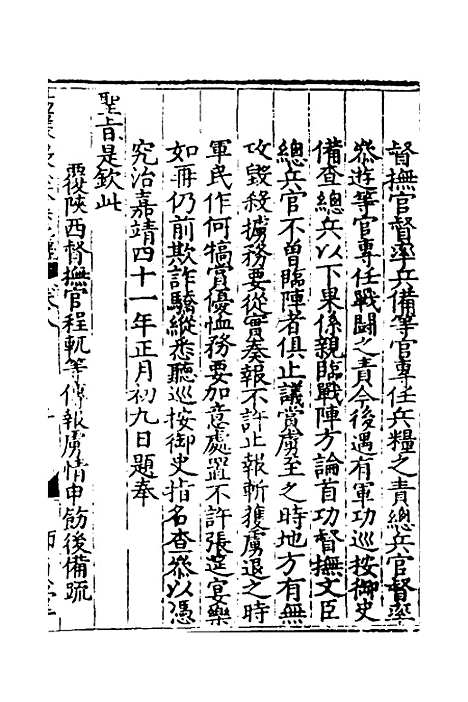 督撫官督率兵備等官專任兵糧之責總兵官督率
叅遊等官專任戰鬬之責今後遇有軍功巡按御史
備查總兵以下果係親臨戰陣方論首功督撫文臣
總兵官不曾臨陣者俱止議賞虜至之時地方有無
攻毀殺擄務要從實奏報不許止報斬獲虜退之時
軍民作何犒賞優恤務要加意處置不許張筵宴樂
如再仍前欺詐驕縱悉聽巡按御史指名查叅以憑
究治嘉靖四十一年正月初九日題奉
聖旨是欽此
覆陝西督撫官程軏等傳報虜情申飭後備疏